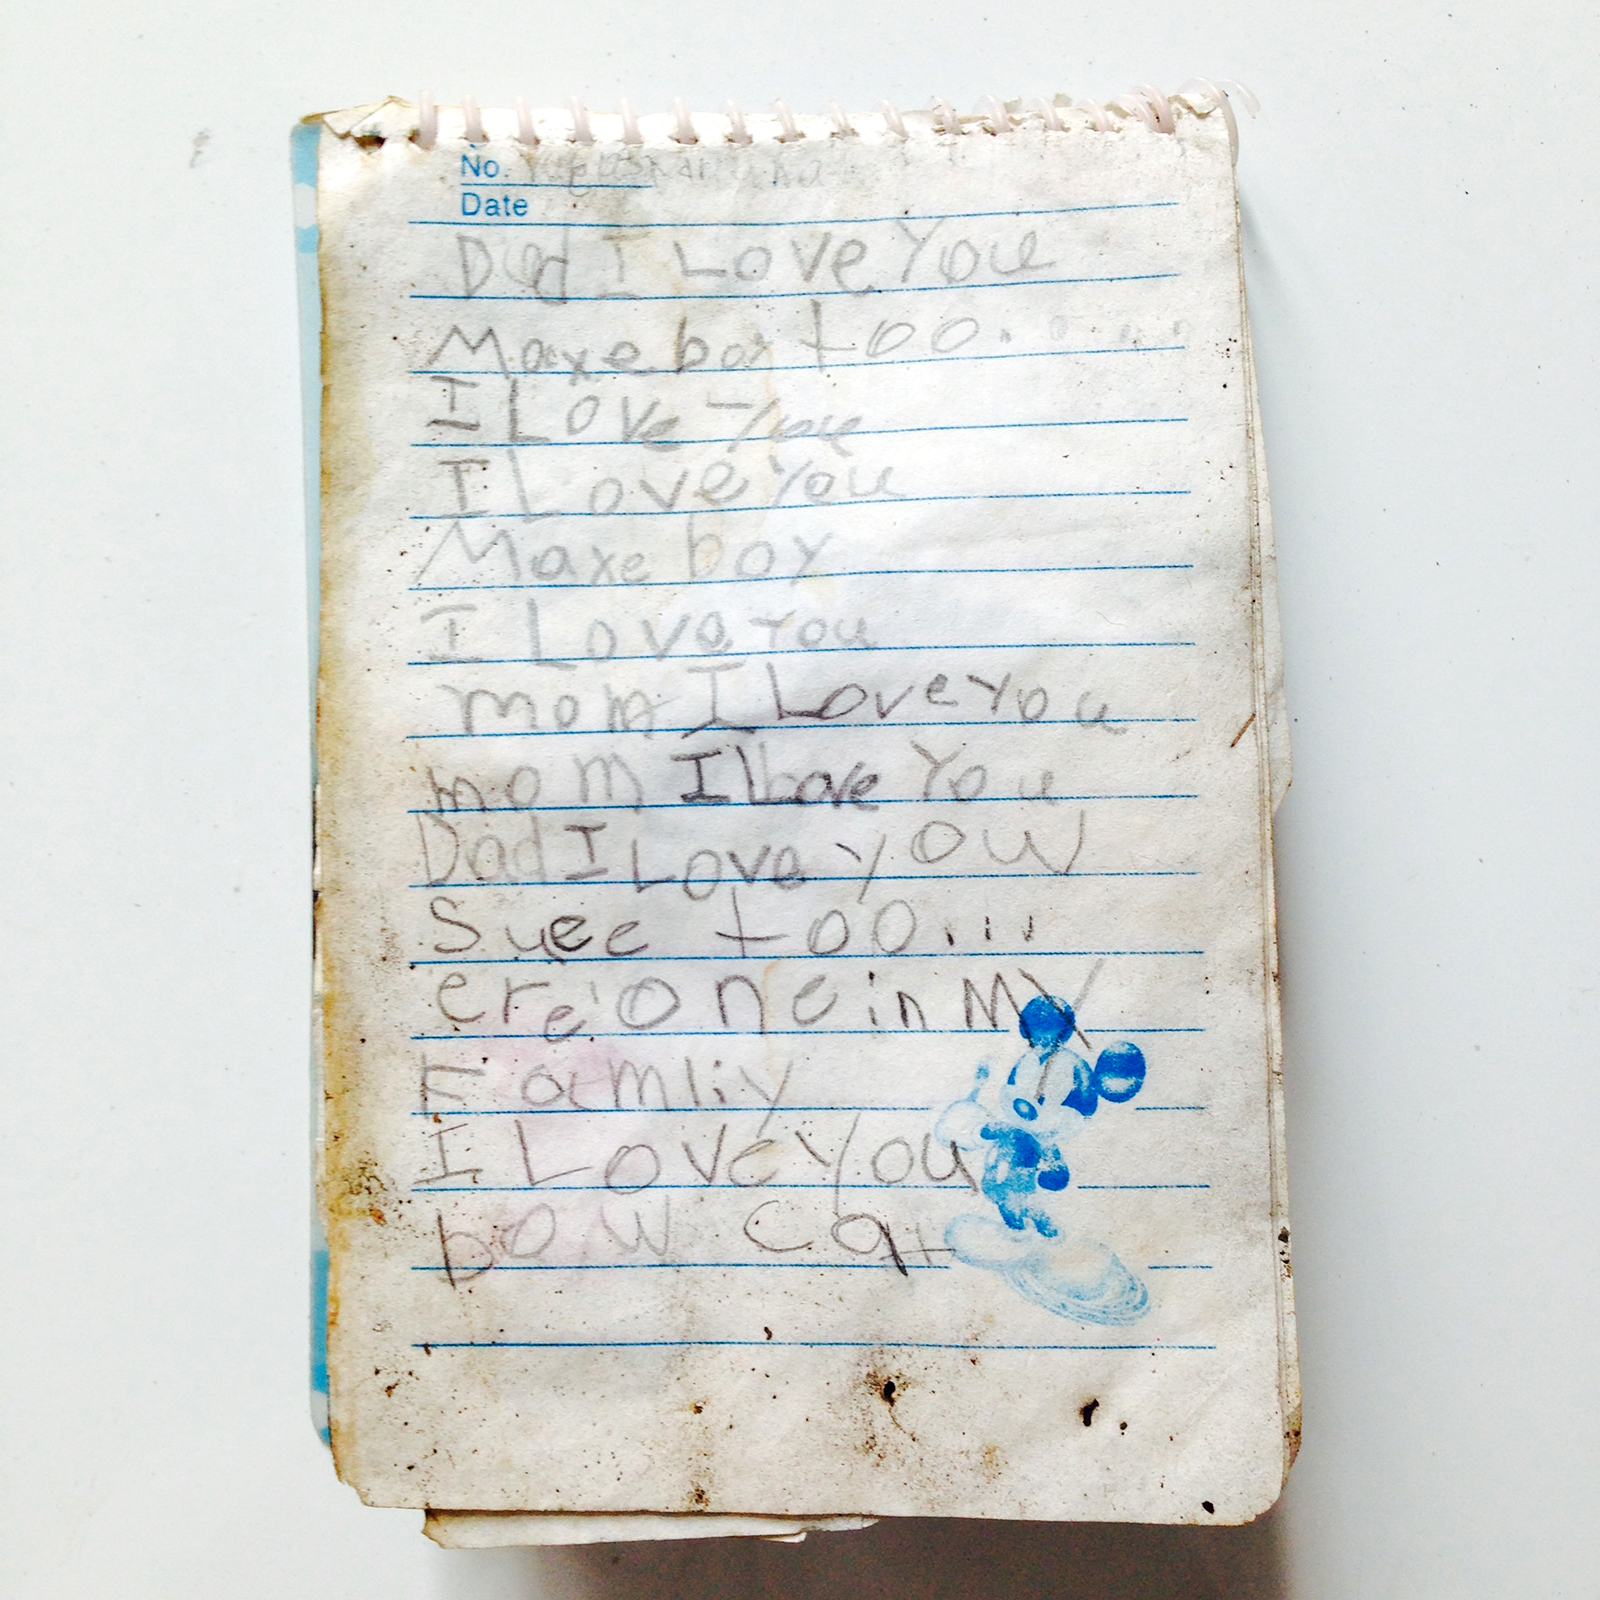 No.
Date
Dad I Love You
Maxe boy too......
I Love You
I Love You
Maxe boy
I Love You
mom I Love You
mom I Love You
Dad I Love yow
Suee too....
ere'one in MY
Famliy
I Love You
bow cat